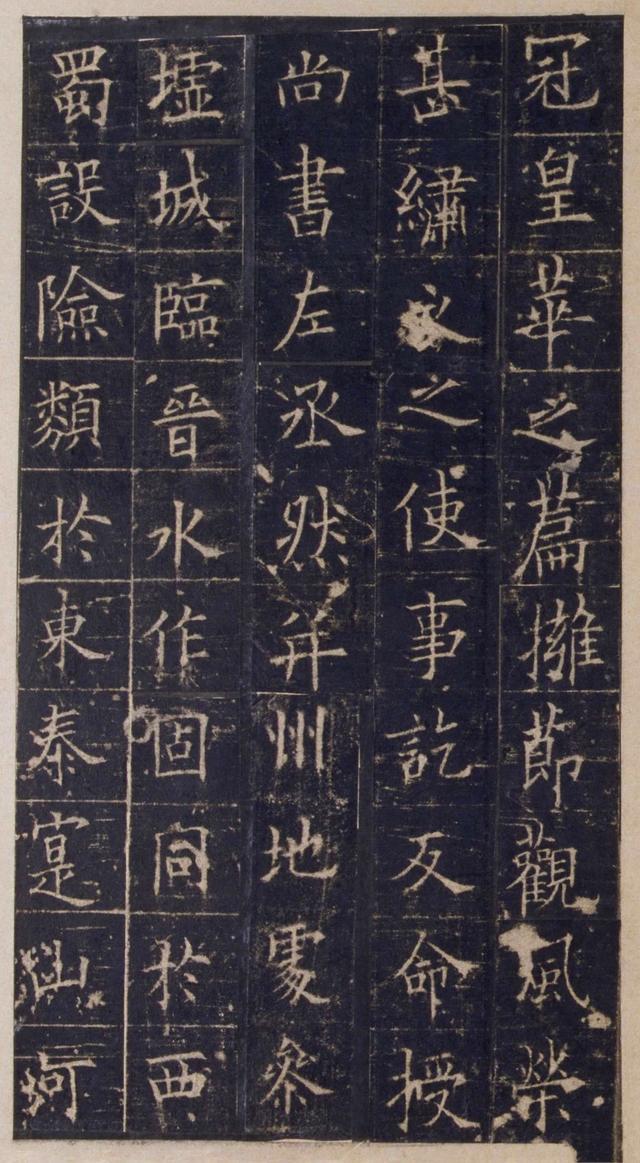 冠皇華之篇擁節觀風榮
甚繡衣之使事訖反命授
尚書左丞然并州地處參
墟城臨晉水作固同於西
蜀設險類於東秦寔山河